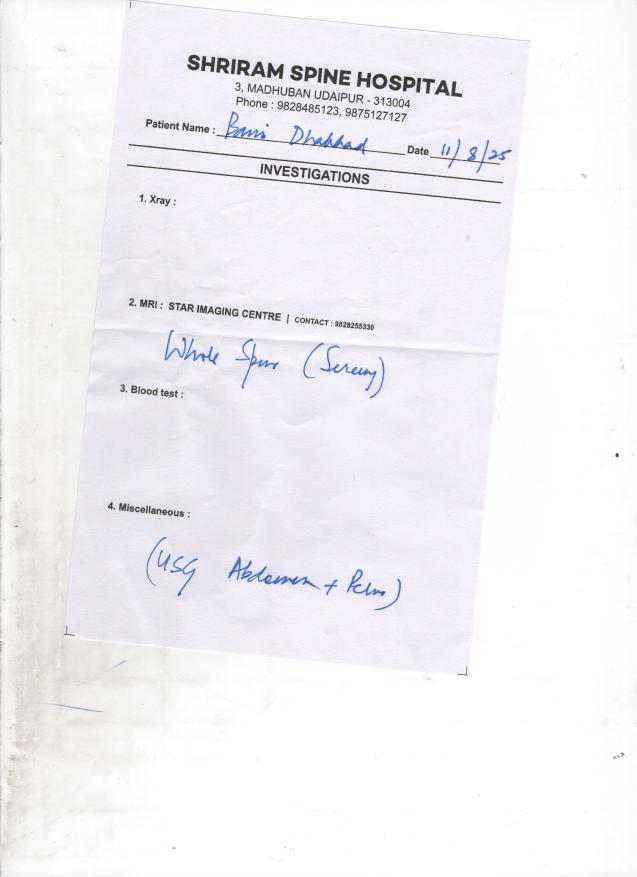 SHRIRAM SPINE HOSPITAL
3, MADHUBAN UDAIPUR - 313004
Phone : 9828485123, 9875127127
Patient Name : Dhakkad Date 11/8/25
INVESTIGATIONS
1. Xray :
2. MRI : STAR IMAGING CENTRE | CONTACT : 9828255330
Whole Spine
3. Blood test :
4. Miscellaneous :
(USG Abdomen + Pelvis)